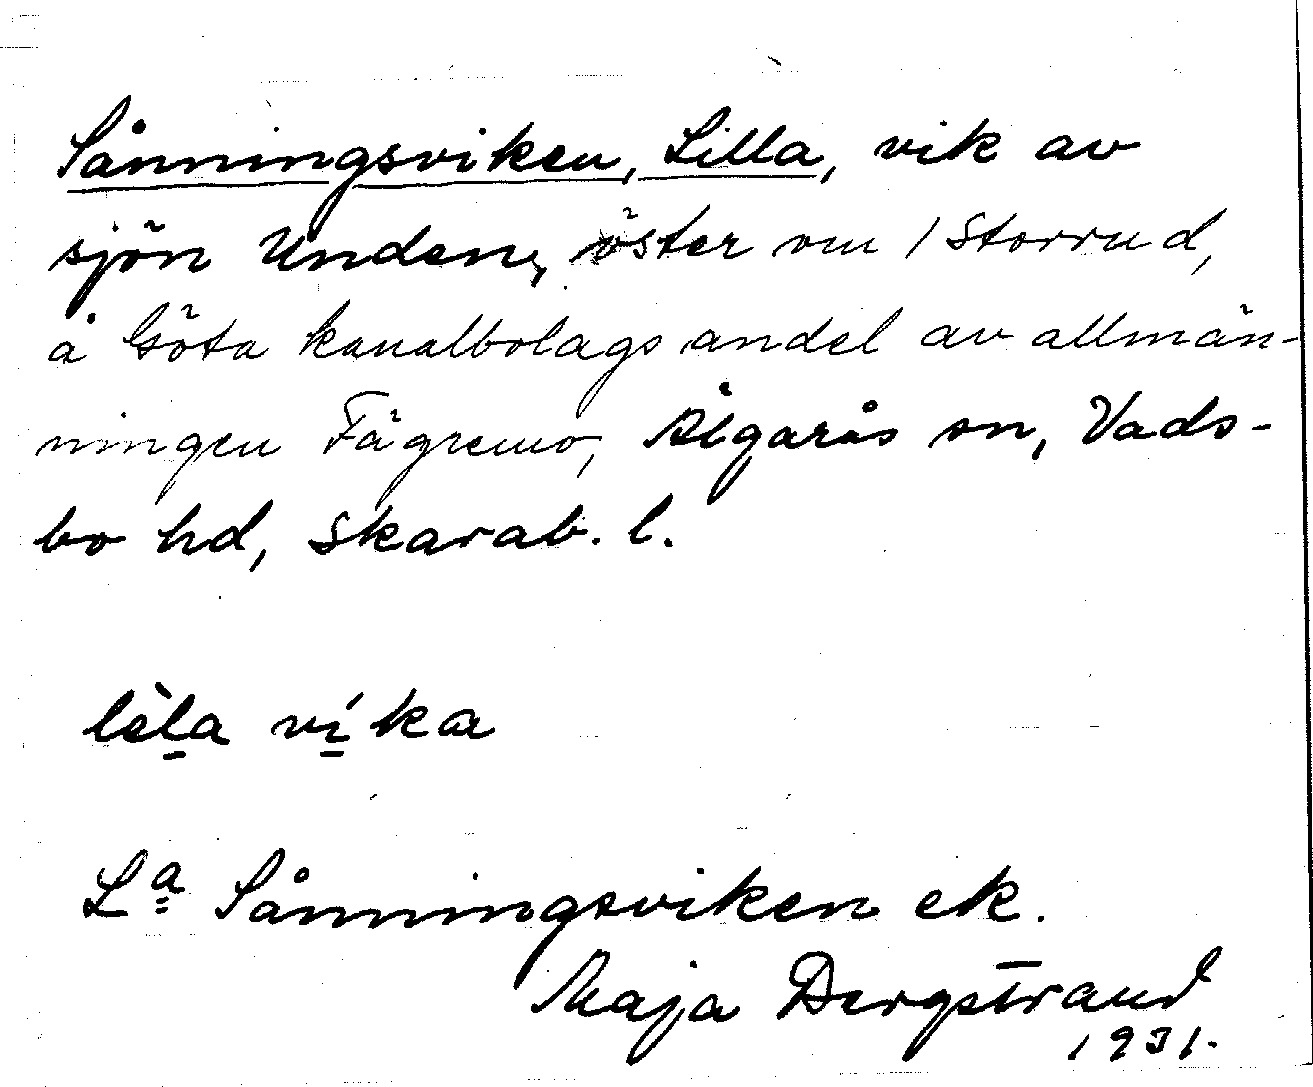 Sånningsviken, Lilla, vik av
sjön Unden, öster om 1 Storrud,
å Göta kanalbolags andel av allmän-
ningen Fägremo, Älgarås sn, Vads-
bo hd, Skarab. l.
lèla víka
La Sånningsviken ek.
Maja Bergstrand
1931.